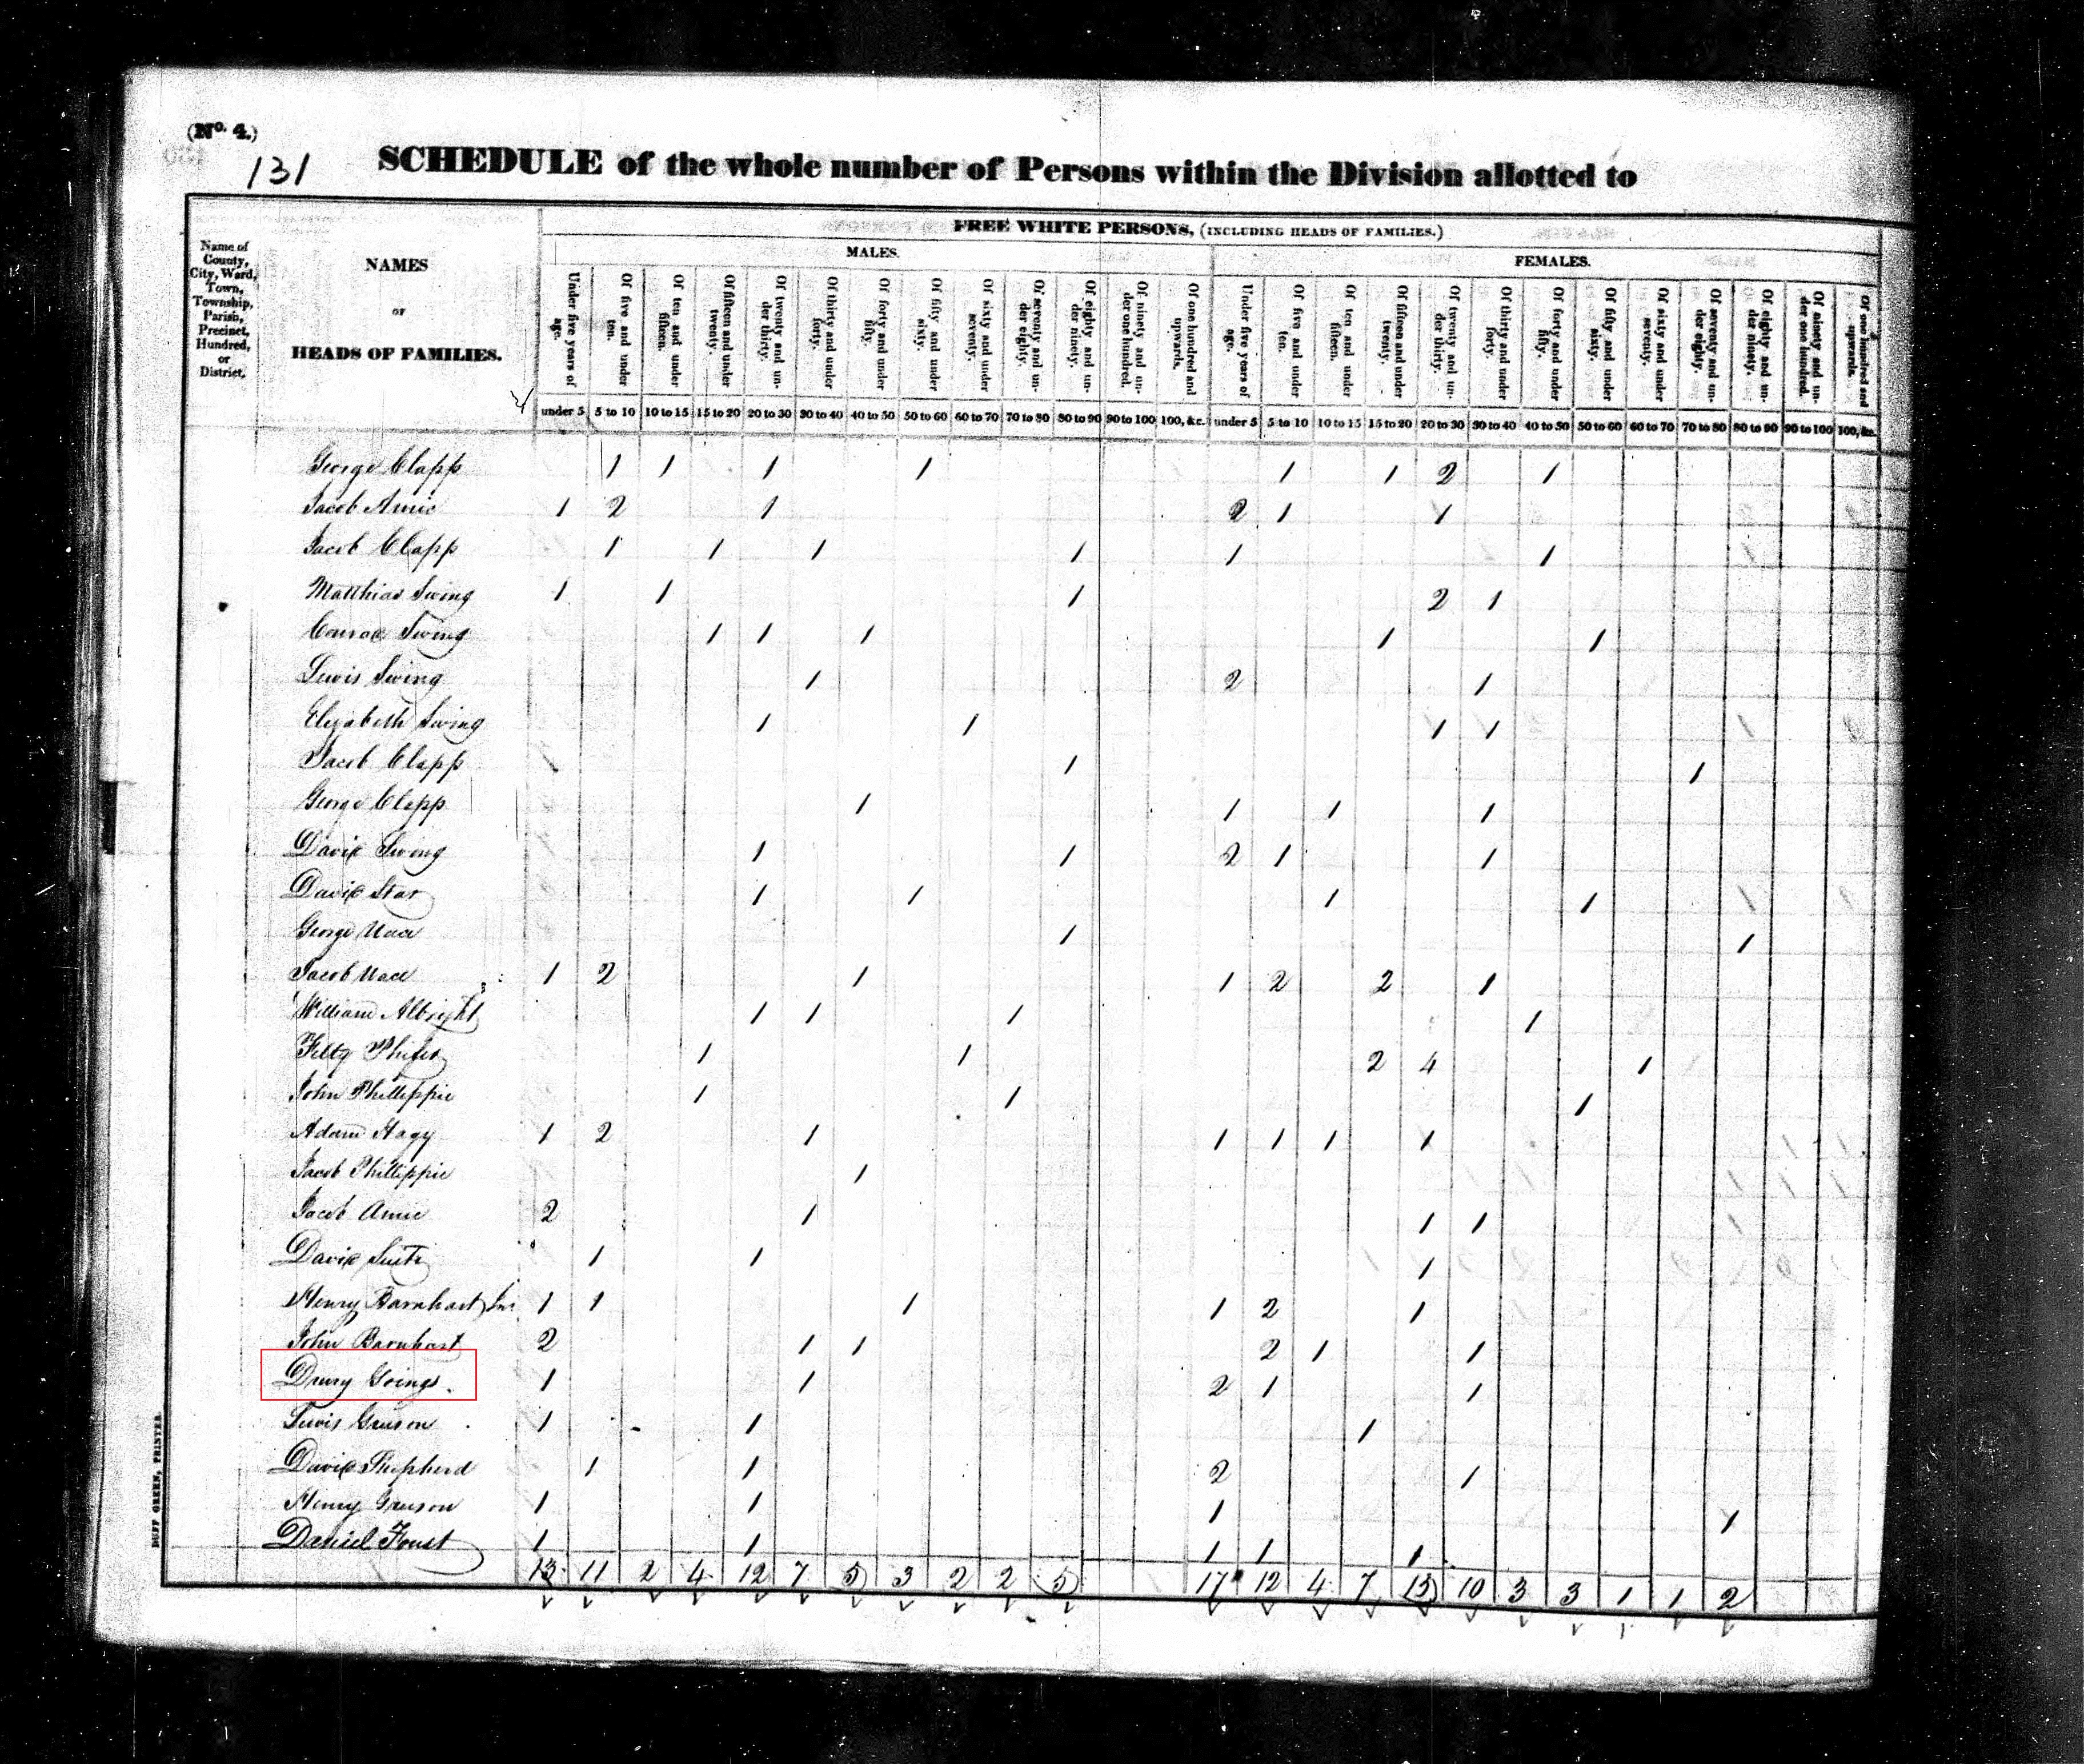 (No. 4.)
131
SCHEDULE of the whole number of Persons within the Division allotted to
FREE WHITE PERSONS, (INCLUDING HEADS OF FAMILIES.)
MALES.
FEMALES.
Name of County, City, Ward, Town, Township, Parish, Precinct, Hundred, or District.
NAMES
OF
HEADS OF FAMILIES.
Under five years of age.
Of five and under ten.
Of ten and under fifteen.
Of fifteen and under twenty.
Of twenty and under thirty.
Of thirty and under forty.
Of forty and under fifty.
Of fifty and under sixty.
Of sixty and under seventy.
Of seventy and under eighty.
Of eighty and under ninety.
Of ninety and under one hundred.
Of one hundred and upwards.
Under five years of age.
Of five and under ten.
Of ten and under fifteen.
Of fifteen and under twenty.
Of twenty and under thirty.
Of thirty and under forty.
Of forty and under fifty.
Of fifty and under sixty.
Of sixty and under seventy.
Of seventy and under eighty.
Of eighty and under ninety.
Of ninety and under one hundred.
Of one hundred and upwards.
under 5 5 to 10 10 to 15 15 to 20 20 to 30 30 to 40 40 to 50 50 to 60 60 to 70 70 to 80 80 to 90 90 to 100 100, &c. under 5 5 to 10 10 to 15 15 to 20 20 to 30 30 to 40 40 to 50 50 to 60 60 to 70 70 to 80 80 to 90 90 to 100 100, &c.
George Clapp 1 1 1 1 1 1 2 1
Jacob Amie 1 2 1 2 1 1
Jacob Clapp 1 1 1 1 1 1
Matthias Swing 1 1 1 2 1
Conrad Swing 1 1 1 1 1
Lewis Swing 1 2 1
Elizabeth Swing 1 1 1 1
Jacob Clapp 1 1
George Clapp 1 1 1 1
David Swing 1 1 2 1 1
David Star 1 1 1 1
George 1 1
Jacob 1 2 1 1 2 2 1
William Albright 1 1 1 1
1 1 2 4 1
John Phillippie 1 1 1
Adam Hagy 1 2 1 1 1 1 1
Jacob Phillippie 1
Jacob Amie 2 1 1 1
David 1 1 1
Henry Barnhart 1 1 1 1 2 1
John Barnhart 2 1 1 2 1 1
Drury Goings 1 1 2 1 1
Lewis 1 1 1
David Shepherd 1 1 2 1
Henry 1 1 1 1
Daniel Foust 1 1 1 1 1
13 11 2 4 12 7 5 3 2 2 5 17 12 4 7 15 10 3 3 1 1 2
DUFF GREEN, PRINTER.